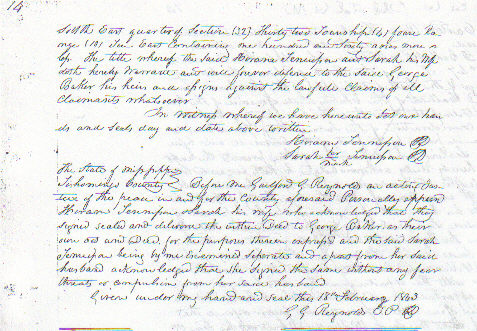 14
South East quarter of Section (32) Thirty two Township (4) four Ra
nge (10) Ten East Containing one hundred and Sixty acres more or
less The title whereof the said Hiram Tennison and Sarah his wife
doth hereby Warrant and will forever defend to the said George
Baker his heirs and assigns against the lawful Claims of all
Claimants whatsoever
In witness whereof we have hereunto set our han
ds and seals day and date above written
Hiram Tennison
Sarah her mark Tennison
The State of Mississippi
Tishomingo County Before me Guilford G Reynolds an acting Jus
tice of the peace in and for the County aforesaid Personally appeared
Hiram Tennison Sarah his wife who acknowledged that they
signed sealed and delivered the within Deed to George Baker as their
own act and deed for the purposes therein expressed and the said Sarah
Tennison being by me examined separate and apart from her said
husband acknowledged that she signed the same without any fear
threats or compulsion from her said husband
Given under my hand and seal the 18th February
G G Reynolds J P